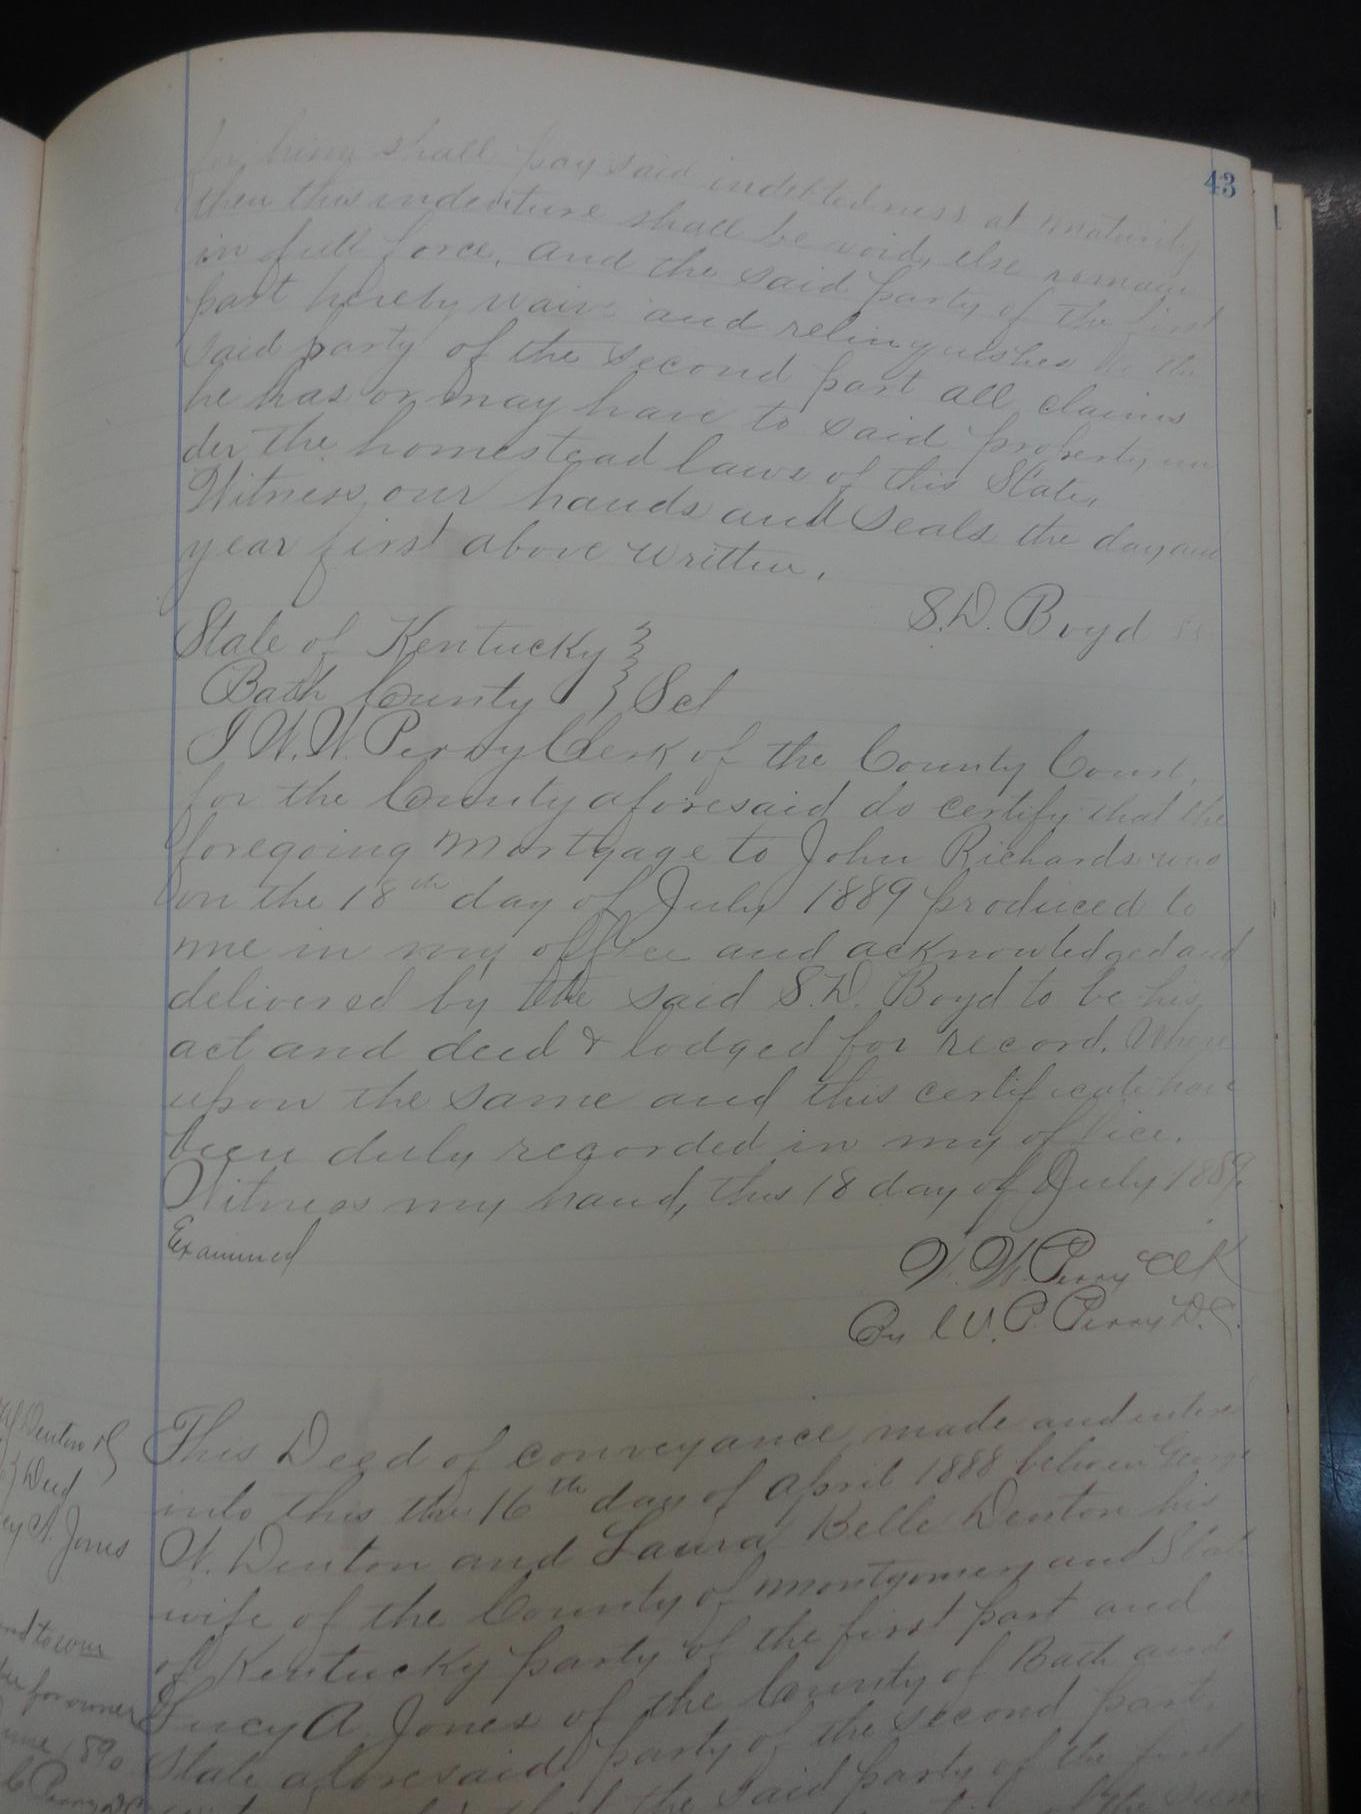 43
for him shall pay said indebtedness at maturity
then this indenture shall be void, else remain
in full force, and the said party of the first
part hereby waive and relinquishes to the
said party of the second part all claims
he has or may have to said property un
der the homestead laws of this State,
Witness, our hands and Seals the day and
year first above written,
S. D. Boyd
State of Kentucky }
Bath County } Sct
I W. W. Perry Clerk of the County Court,
for the County aforesaid do certify that the
foregoing Mortgage to John Richards was
on the 18th day of July 1889 produced to
me in my office and acknowledged and
delivered by the said S. D. Boyd to be his
act and deed & lodged for record. Where
upon the same and this certificate have
been duly recorded in my office.
Witness my hand, this 18 day of July 1889
Examined
W. W. Perry Clk
By W. P. Perry D.C.
Denton
} Deed
A. Jones
This Deed of conveyance made and entered
into this the 16th day of April 1888 between George
W. Denton and Laura Belle Denton his
wife of the County of Montgomery and State
of Kentucky party of the first part and
Lucy A. Jones of the County of Bath and
State aforesaid party of the second part,
for owner
1890
Perry DC
the said party of the first